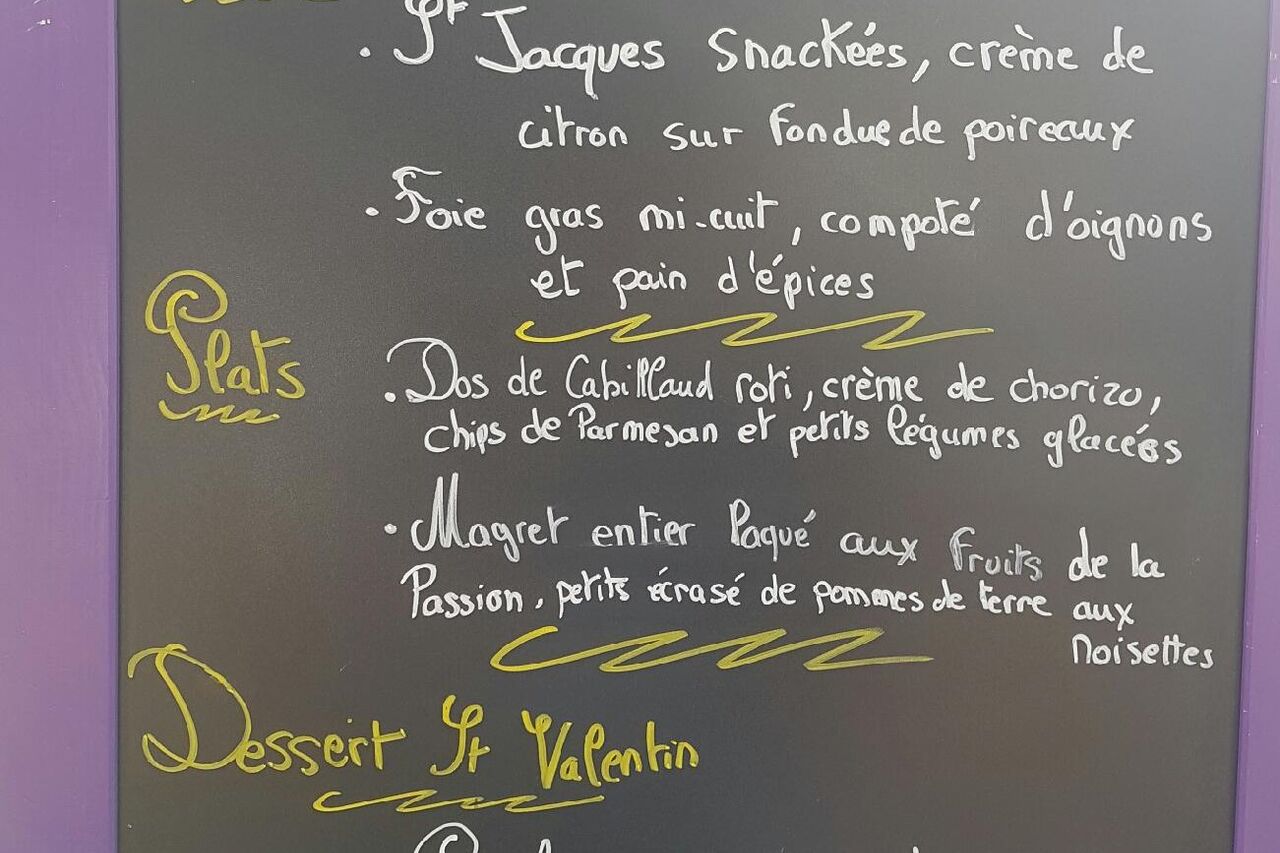 . St Jacques Snackées, crème de
citron sur Fondue de poireaux
. Foie gras mi-cuit, compoté d'oignons
et pain d'épices
Plats
. Dos de Cabillaud roti, crème de chorizo,
chips de Parmesan et petits légumes glaceés
. Magret entier laqué aux fruits de la
Passion, petits écrasé de pommes de terre aux
noisettes
Dessert St Valentin